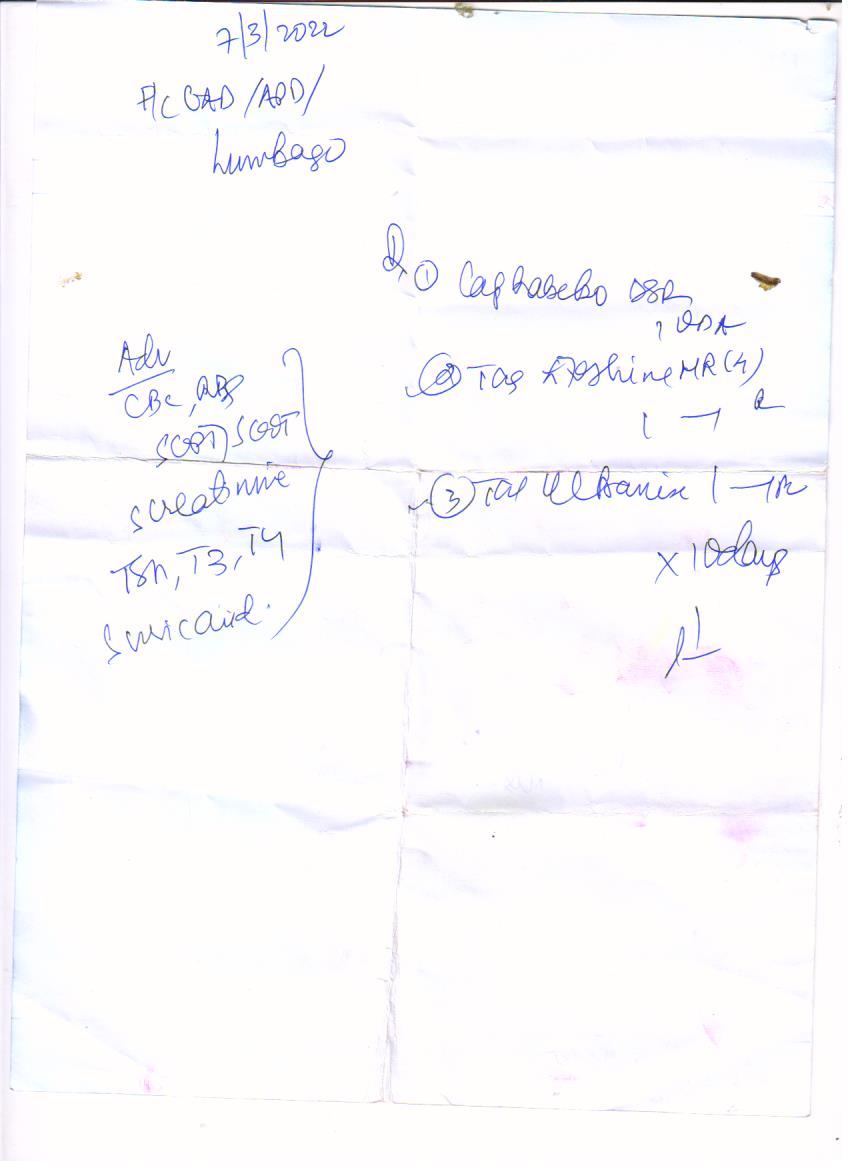 7/3/2022
F/C GAD /APD/
Lumbago
Rx ① Cap Rabeko DSR
1 ODA
② Tab MR (4)
1 —
③ Tab 1 —
x 10 days
Adv
CBC, RBS
SGPT, SGOT
S creatinine
TSH, T3, T4
S uric acid.